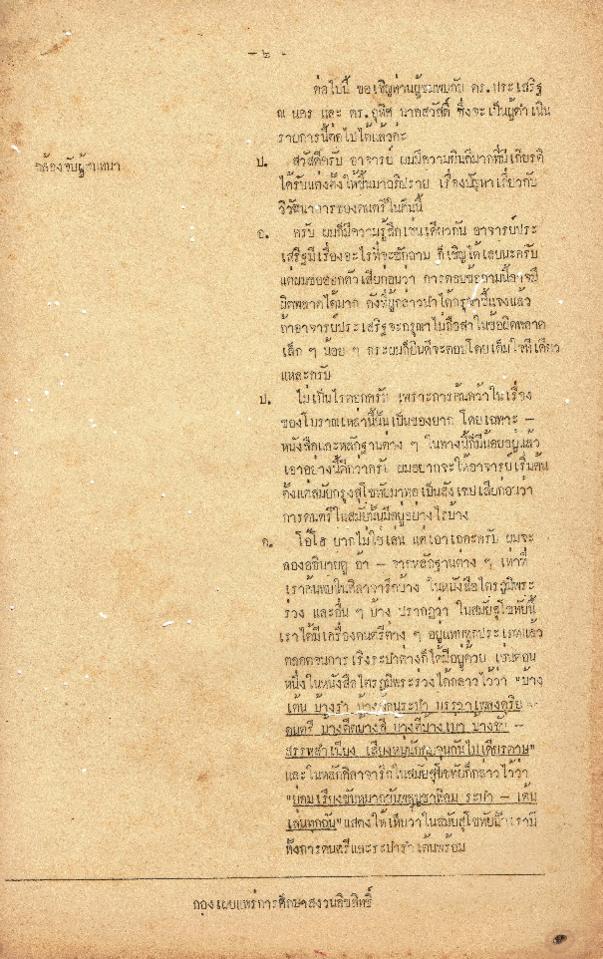 - ๒ -
ต่อไปนี้ ขอเชิญท่านผู้ชมพบกับ ดร.ประเสริฐ
ณ นคร และ ดร.อุทิศ นาคสวัสดิ์ ซึ่งจะเป็นผู้ดำเนิน
รายการนี้ต่อไปได้แล้วค่ะ
กล้องจับผู้สนทนา
ป. สวัสดีครับ อาจารย์ ผมมีความยินดีมากที่มีเกียรติ
ได้รับแต่งตั้งให้ขึ้นมาอภิปราย เรื่องปัญหาเกี่ยวกับ
วิวัฒนาการของดนตรีในคืนนี้
อ. ครับ ผมก็มีความรู้สึกเช่นเดียวกัน อาจารย์ประ
เสริฐมีเรื่องอะไรที่จะซักถาม ก็เชิญได้เลยนะครับ
แต่ผมขอออกตัวเสียก่อนว่า การตอบข้อถามนี้อาจมี
ผิดพลาดได้มาก ดังที่ผู้กล่าวนำได้กรุณาชี้แจงแล้ว
ถ้าอาจารย์ประเสริฐจะกรุณาไม่ถือสาในข้อผิดพลาด
เล็ก ๆ น้อย ๆ กระผมก็ยินดีจะตอบโดยเต็มใจทีเดียว
แหละครับ
ป. ไม่เป็นไรดอกครับ เพราะการค้นคว้าในเรื่อง
ของโบราณเหล่านี้นั้นเป็นของยาก โดยเฉพาะ -
หนังสือและหลักฐานต่าง ๆ ในทางนี้ก็มีน้อยอยู่แล้ว
เอาอย่างนี้ดีกว่าครับ ผมอยากจะให้อาจารย์เริ่มต้น
ตั้งแต่สมัยกรุงสุโขทัยมาพอเป็นสังเขปเสียก่อนว่า
การดนตรีในสมัยนั้นมีอยู่อย่างไรบ้าง
อ. โอ้โฮ ยากไม่ใช่เล่น แต่เอาเถอะครับ ผมจะ
ลองอธิบายดู อ้า - จากหลักฐานต่าง ๆ เท่าที่
เราค้นพบในศิลาจารึกบ้าง ในหนังสือไตรภูมิพระ
ร่วง และอื่น ๆ บ้าง ปรากฏว่า ในสมัยสุโขทัยนี้
เราได้มีเครื่องดนตรีต่าง ๆ อยู่แทบทุกประเภทแล้ว
ตลอดจนการเริงระบำต่างก็ได้มีอยู่ด้วย เช่นตอน
หนึ่งในหนังสือไตรภูมิพระร่วงได้กล่าวไว้ว่า "บ้าง
เต้น บ้างรำ บ้างฟ้อนระบำ บรรลือเพลงดุริย -
ดนตรี บ้างดีดบ้างสี บ้างตีบ้างเป่า บ้างขับ -
สรรพสำเนียง เสียงหมู่นักคุนจุนกันไปเดียรดาษ"
และในหลักศิลาจารึกในสมัยสุโขทัยก็กล่าวไว้ว่า
"ย่อมเรียงขันหมากขันพลูบูชาพิลม ระบำ - เต้น
เล่นทุกฉัน" แสดงให้เห็นว่าในสมัยสุโขทัยนี้ เรามี
ทั้งการดนตรีและระบำรำเต้นพร้อม
กองเผยแพร่การศึกษาสงวนลิขสิทธิ์